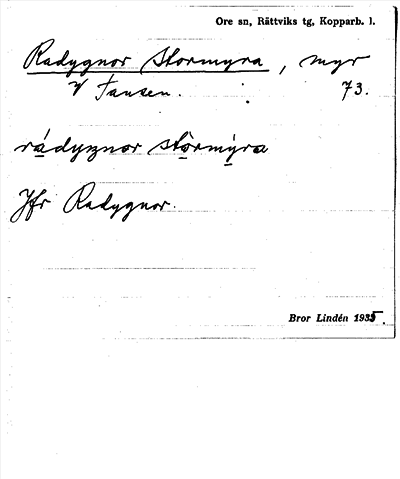 Ore sn, Rättviks tg, Kopparb. l.
Radygnor Stormyra, myr
V Tansen. 73.
rádyŋnor stòrmỳra
Jfr Radygnor.
Bror Lindén 1935.